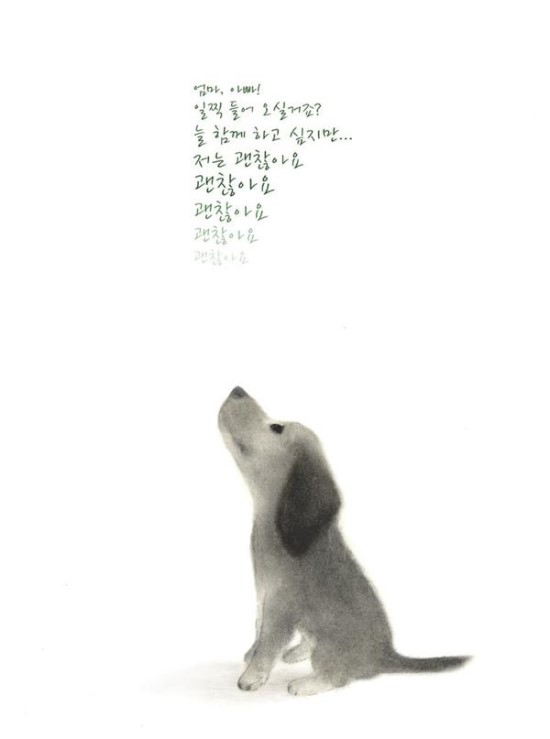 엄마, 아빠!
일찍 들어 오실거죠?
늘 함께 하고 싶지만...
저는 괜찮아요
괜찮아요
괜찮아요
괜찮아요
괜찮아요